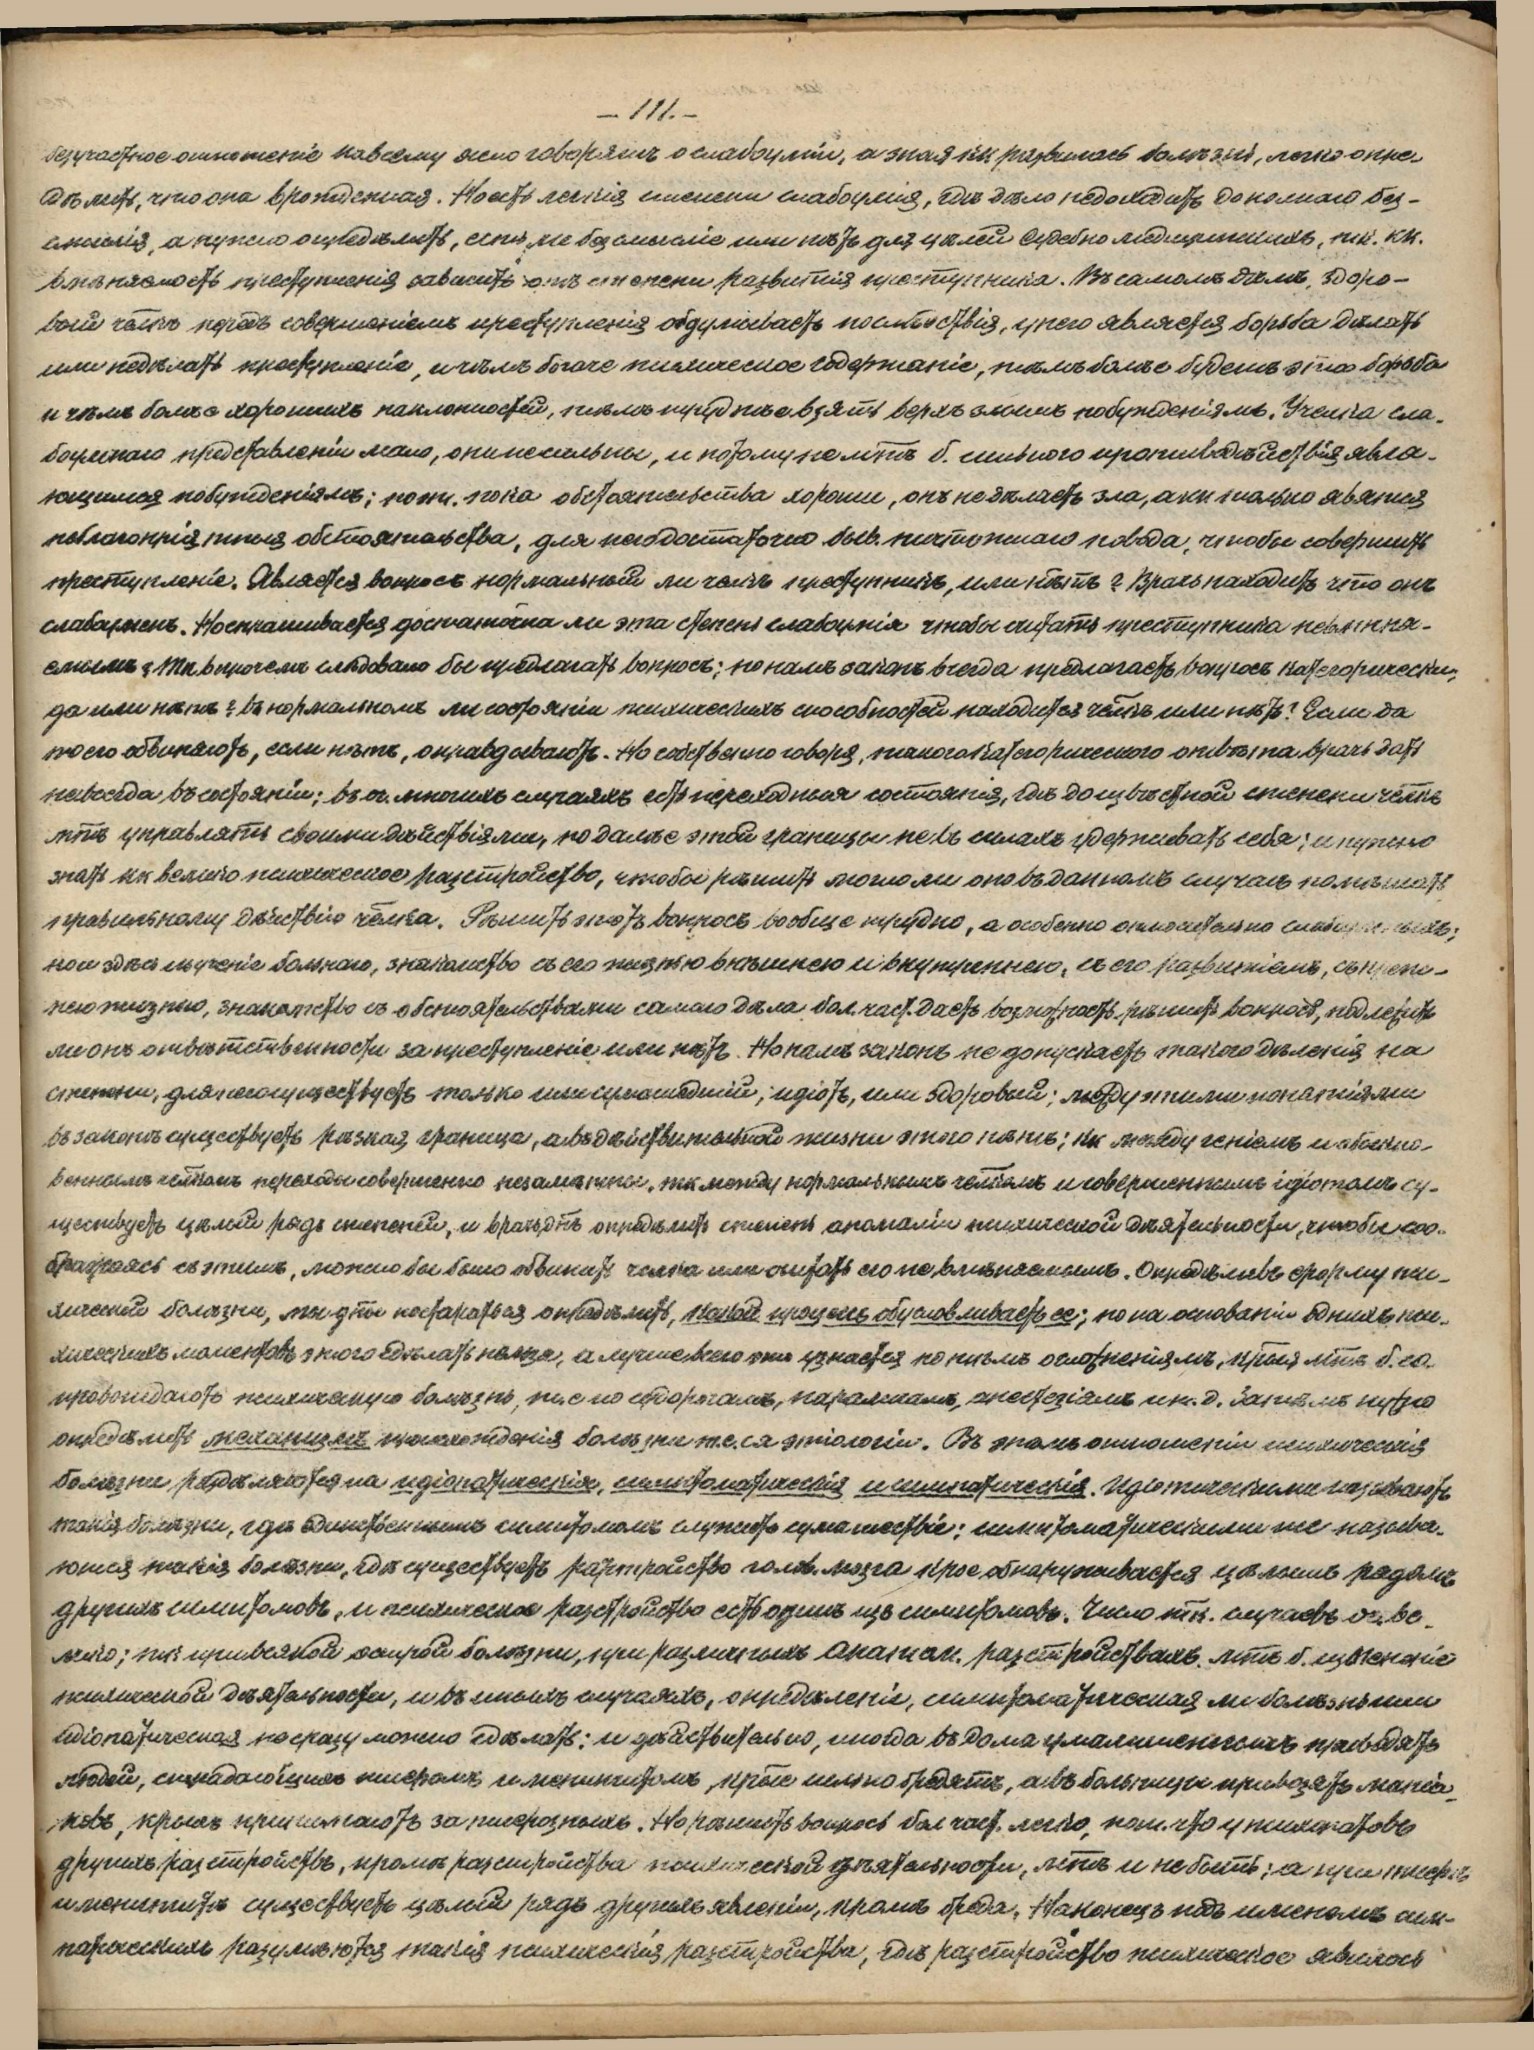 — 111. —
безучастное отношение ко всему ясно говорятъ о слабоуміи, а зная кк развилась болѣзнь, легко опре-
дѣлить, что она врожденная. Но есть легкія степени слабоумія, гдѣ дѣло недоходитъ до полнаго без-
смыслія, а нужно опредѣлить, есть ли безсмысліе или нѣтъ для цѣлей судебно медицинскихъ, тк. кк.
вмѣняемость преступленія зависитъ отъ степени развитія преступника. Въ самомъ дѣлѣ, здоро-
вый челкъ передъ совершеніемъ преступленія обдумываетъ послѣдствія, у него является борьба дѣлать
или недѣлать преступленіе, и чѣмъ богаче психическое содержаніе, тѣмъ болѣе будетъ эта борьба
и чѣмъ болѣе хорошихъ наклонностей, тѣмъ труднѣе взять верхъ злымъ побужденіямъ. У челка сла-
боумнаго представленій мало, они несильны, и потому не мтъ б. сильнаго противодѣйствія явля-
ющимся побужденіямъ; поэт. пока обстоятельства хороши, онъ недѣлаетъ зла, а кк только явятся
неблагопріятныя обстоятельства, для него достаточно быв. ничтожнаго повода, чтобы совершить
преступленіе. Является вопросъ нормальный ли челкъ преступникъ, или нѣтъ? Врачъ находитъ что онъ
слабоуменъ. Но спрашивается достаточна ли эта степень слабоумія чтобы считать преступника невмѣня-
емымъ? Тк впрочемъ слѣдовало бы предлагать вопросъ; но намъ законъ всегда предлагаетъ вопросъ категорически,
да или нѣтъ? въ нормальномъ ли состояніи психическихъ способностей находится челкъ или нѣтъ? Если да
то его обвиняютъ, если нѣтъ, оправдываютъ. Но собственно говоря, такого категорическаго отвѣта врачъ дать
невсегда въ состояніи; въ оч. многихъ случаяхъ есть переходныя состоянія, гдѣ до извѣстной степени челкъ
мтъ управлять своими дѣйствіями, но далѣе этой границы не въ силахъ удерживать себя; и нужно
знать кк велико психическое разстройство, чтобы рѣшить могло ли оно въ данномъ случаѣ помѣшать
правильному дѣйствію челка. Рѣшить этотъ вопросъ вообще трудно, а особенно относительно слабоумныхъ;
но и здѣсь изученіе больнаго, знакомство съ его жизнью внѣшнею и внутреннею, съ его развитіемъ, съ преж-
нею жизнію, знакомство съ обстоятельствами самаго дѣла бол. част. даетъ возможность рѣшить вопросъ, подлежитъ
ли онъ отвѣтственности за преступленіе или нѣтъ. Но намъ законъ не допускаетъ такого дѣленія на
степени, для него существуетъ только или сумасшедшій, идіотъ, или здоровый; между этими понятіями
въ законѣ существуетъ рѣзкая граница, а въ дѣйствительной жизни этого нѣтъ; кк между геніемъ и обыкно-
веннымъ челкомъ переходы совершенно незамѣтны, тк между нормальнымъ челкомъ и совершеннымъ идіотомъ су-
ществуетъ цѣлый рядъ степеней, и врачъ дтъ опредѣлить степень аномаліи психической дѣятельности, чтобы соо-
бражаясь съ этимъ, можно бы было обвинять челка или считать его не вмѣняемымъ. Опредѣливъ форму пси-
хической болѣзни, мы дны постараться опредѣлить, какой процессъ обусловливаетъ ее; но на основаніи однихъ пси-
хическихъ моментовъ этого сдѣлать нельзя, а лучше всего это узнается по тѣмъ осложненіямъ, крыя мтъ б. со-
провождаютъ психическую болѣзнь, т.е по судорогамъ, параличамъ, анестезіямъ и т. д. Затѣмъ нужно
опредѣлить механизмъ происхожденія болѣзни т.е. ея этіологіи. Въ этомъ отношеніи психическія
болѣзни раздѣляются на идіопатическія, симптоматическія и симпатическія. Идіопатическими называютъ
такія болѣзни, гдѣ единственнымъ симптомомъ служитъ сумасшествіе; симптоматическими же называ-
ются такія болѣзни, гдѣ существуетъ разстройство голов. мозга крое обнаруживается цѣлымъ рядомъ
другихъ симптомовъ, и психическое разстройство есть одинъ изъ симптомовъ. Число тк. случаевъ оч. ве-
лико; тк при всякой острой болѣзни, при различныхъ анатом. разстройствахъ, мтъ б. измѣненіе
психической дѣятельности, и въ иныхъ случаяхъ, опредѣленіе, симптоматическая ли болѣзнь или
идіопатическая несразу можно сдѣлать; и дѣйствительно, иногда въ дома умалишенныхъ приводятъ
людей, страдающихъ тифомъ и менингитомъ, крые сильно бредятъ, а въ больницы привозятъ маніа-
ковъ, крыхъ принимаютъ за тифозныхъ. Но рѣшить вопросъ бол част. легко, пот. что у психопатовъ
другихъ разстройствъ, кромѣ разстройства психической дѣятельности, мтъ и не быть; а при тифѣ
и менингитѣ существуетъ цѣлый рядъ другихъ явленій, кромѣ бреда. Наконецъ подъ именемъ сим-
патическихъ разумѣются такія психическія разстройства, гдѣ разстройство психическое явилось